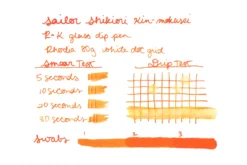 Sailor Shikiori Kin-mokusei
R+K glass dip pen
Rhodia 80g white dot grid
Smear Test
Drip Test
5 seconds
10 seconds
20 seconds
40 seconds
swabs
1
2
3